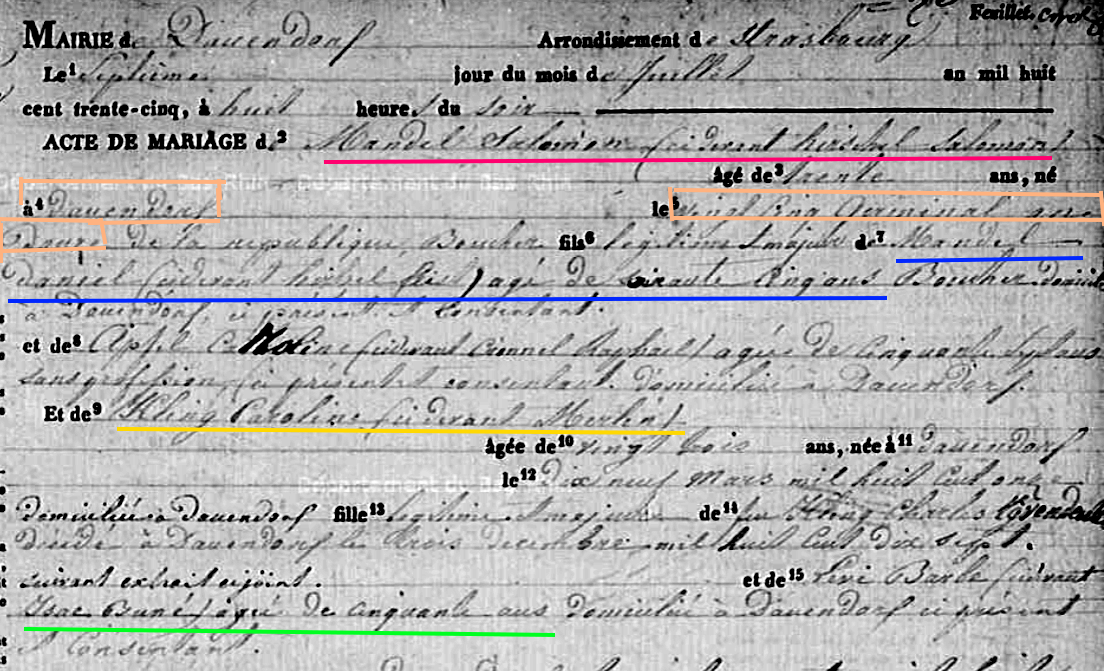 Feuillet
MAIRIE de Dauendorf Arrondissement de Strasbourg
Le¹ Septième jour du mois de Juillet an mil huit
cent trente-cinq, à huit heures du soir
ACTE DE MARIAGE de² Mandel Salomon (cidevant hirschel Salomon)
âgé de³ trente ans, né
à⁴ Dauendorf le⁵ vingt cinq Germinal an
Douze de la republique Boucher fils⁶ légitime & majeur de⁷ Mandel
Daniel (cidevant) agé de soixante Cinq ans Boucher domicilié
à Dauendorf, ci présent & Consentant.
et de⁸ Apfel (cidevant Raphael) agée de Cinquante Sept ans
sans profession ci présente & consentant. domiciliée à Dauendorf.
Et de⁹ Kling Caroline (cidevant Merlin)
âgée de¹⁰ vingt trois ans, née à¹¹ Dauendorf
le¹² dix neuf Mars mil huit Cent onze
domiciliée à Dauendorf fille¹³ légitime & majeure de¹⁴ feu Kling Charles
décédé à Dauendorf le trois decembre mil huit Cent dix sept.
suivant extrait cijoint. et de¹⁵ Levi Barbe (cidevant
Isac Buné) agée de cinquante ans domiciliée à Dauendorf ci présent
& Consentant.